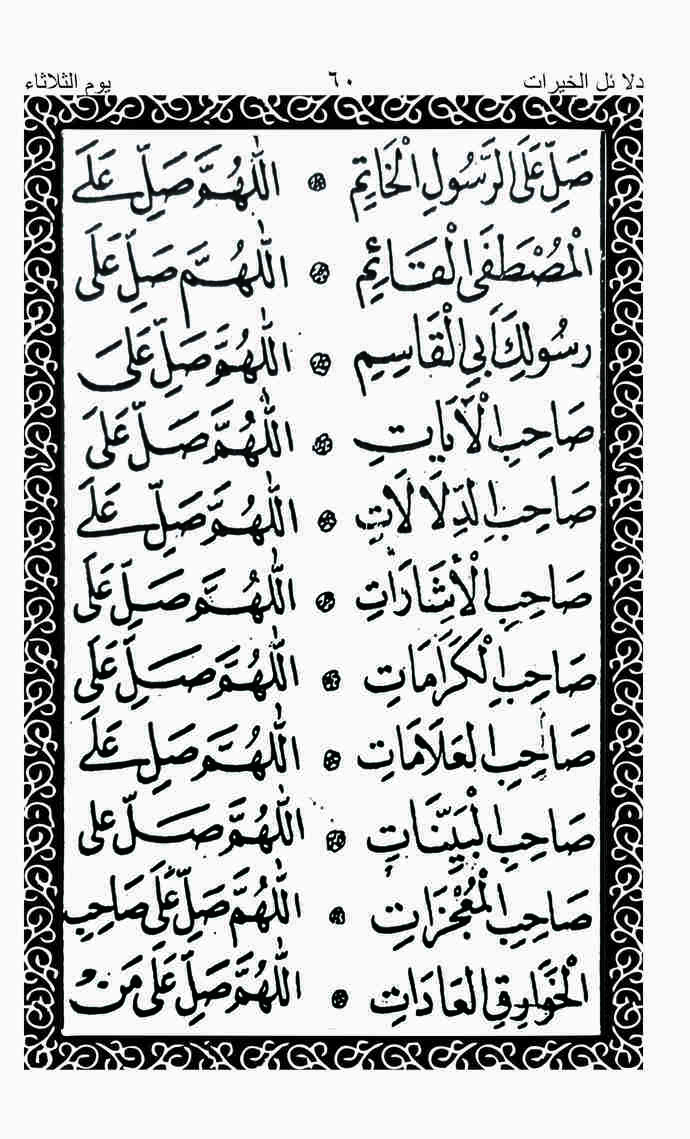 دلائل الخيرات ٦٠ يوم الثلاثاء
صَلِّ عَلَى الرَّسُولِ الْخَاتِمِ ۞ اَللّٰهُمَّ صَلِّ عَلَى
الْمُصْطَفَى الْقَائِمِ ۞ اَللّٰهُمَّ صَلِّ عَلَى
رَسُولِكَ اَبِي الْقَاسِمِ ۞ اَللّٰهُمَّ صَلِّ عَلَى
صَاحِبِ الْآيَاتِ ۞ اَللّٰهُمَّ صَلِّ عَلَى
صَاحِبِ الدِّلَالَاتِ ۞ اَللّٰهُمَّ صَلِّ عَلَى
صَاحِبِ الْأِشَارَاتِ ۞ اَللّٰهُمَّ صَلِّ عَلَى
صَاحِبِ الْكَرَامَاتِ ۞ اَللّٰهُمَّ صَلِّ عَلَى
صَاحِبِ الْعَلَامَاتِ ۞ اَللّٰهُمَّ صَلِّ عَلَى
صَاحِبِ الْبَيِّنَاتِ ۞ اَللّٰهُمَّ صَلِّ عَلَى
صَاحِبِ الْمُعْجِزَاتِ ۞ اَللّٰهُمَّ صَلِّ عَلَى صَاحِبِ
الْخَوَارِقِ الْعَادَاتِ ۞ اَللّٰهُمَّ صَلِّ عَلَى مَنْ